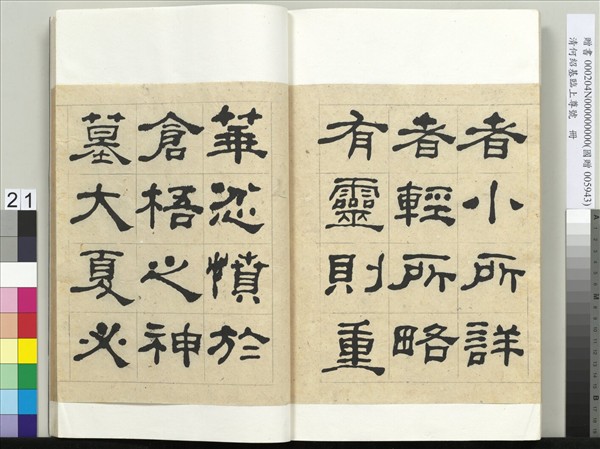 者小所詳
者輕所略
有靈則重
華忿憤於
倉梧之神
墓大夏必
贈書 000204N000000000(國贈 005943)
清何紹基臨上尊號 冊
21
A
M
B